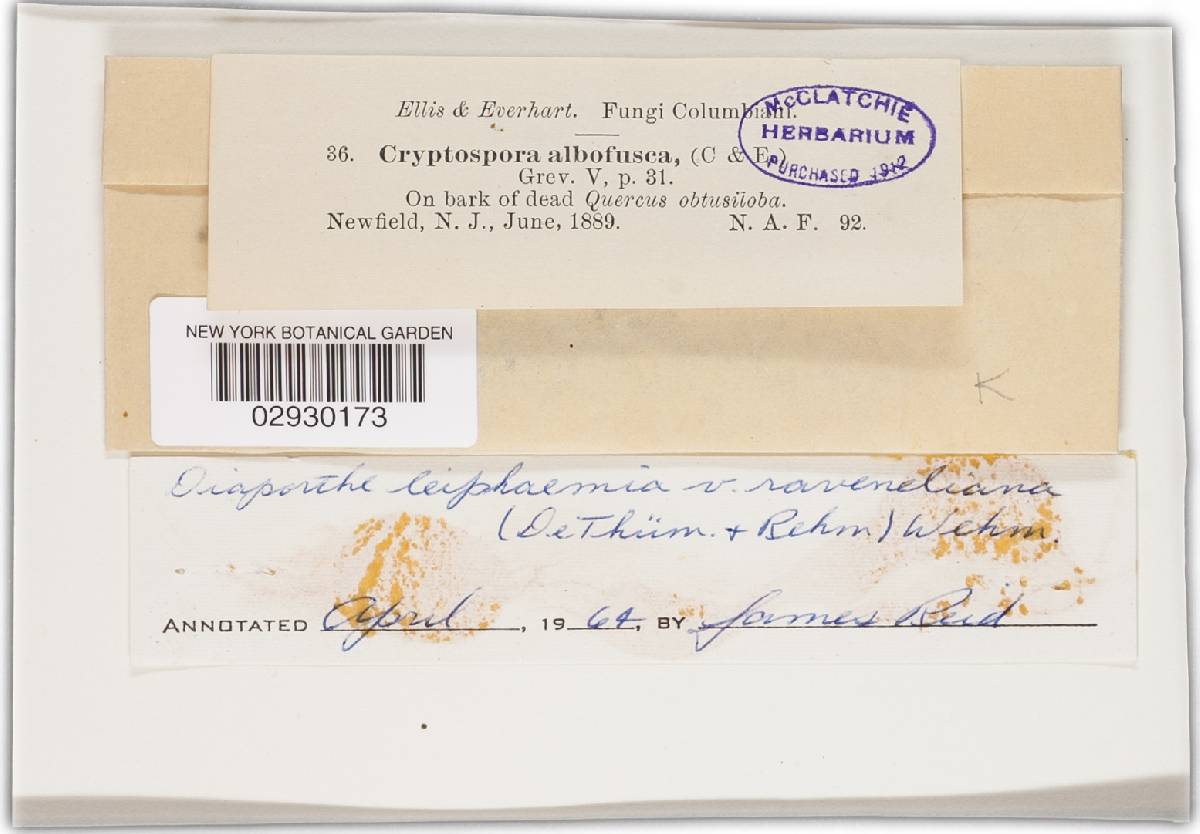 Ellis & Everhart. Fungi Columbiani.
36. Cryptospora albofusca, (C & E.)
Grev. V, p. 31.
On bark of dead Quercus obtusiloba.
Newfield, N. J., June, 1889. N. A. F. 92.
McCLATCHIE
HERBARIUM
PURCHASED 1912
NEW YORK BOTANICAL GARDEN
02930173
K
Diaporthe leiphaemia v. raveneliana
(DeThüm. + Rehm) Wehm.
ANNOTATED April, 1964, BY James Reid